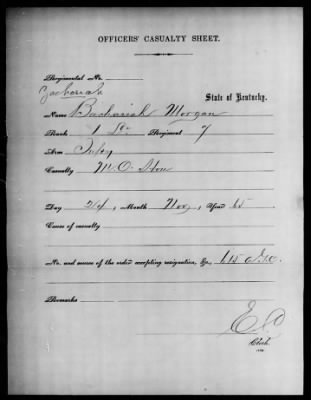 OFFICERS' CASUALTY SHEET.
Regimental No.
State of Kentucky.
Zachariah
Name Bachariah Morgan
Rank 1 Lt Regiment 7
Arm Infty
Casualty M. O.
Day 24, Month Nov, Year 65
Cause of casualty
No. and source of the order accepting resignation, &c.,
Remarks
Clerk.